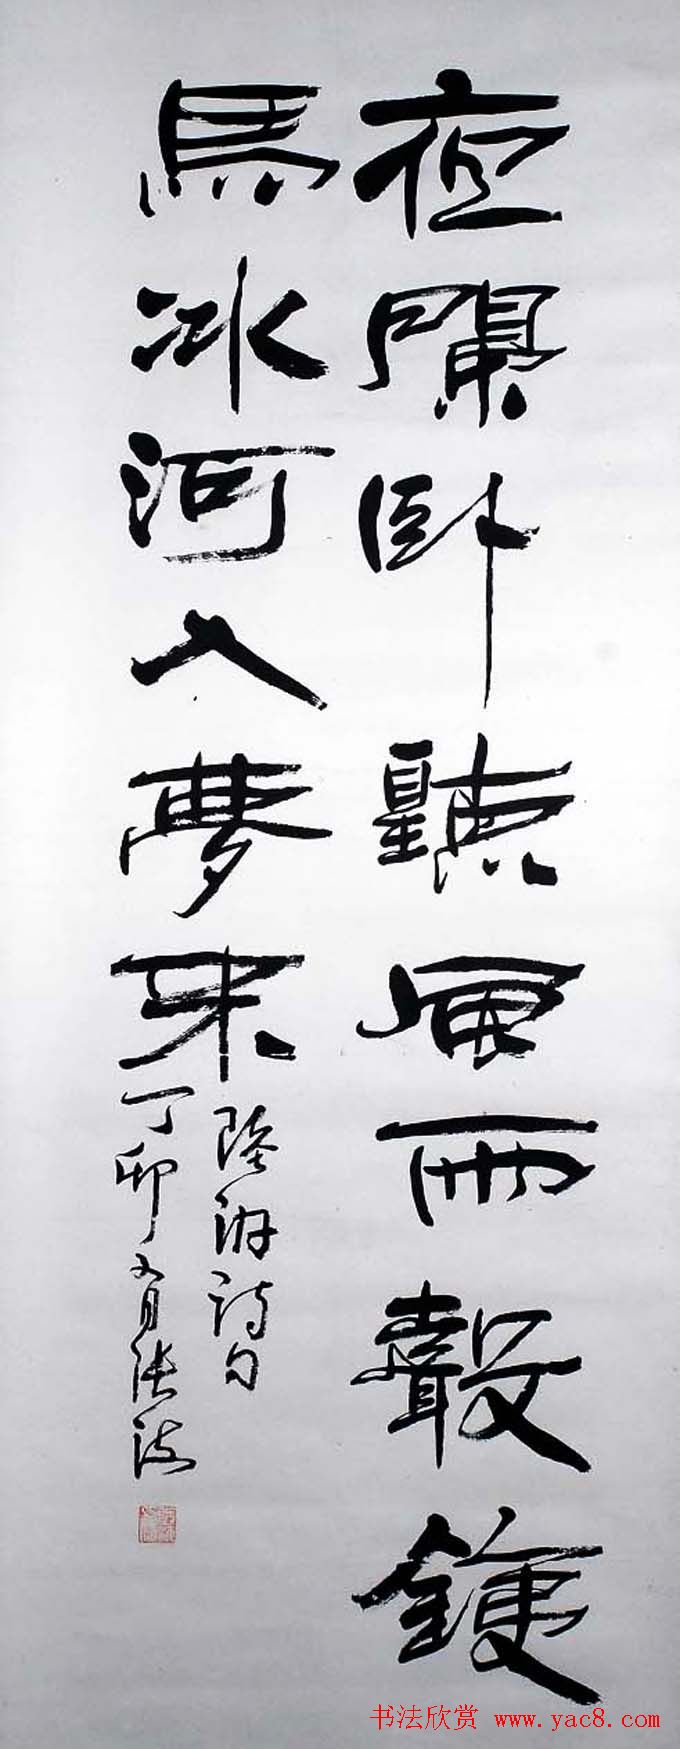 夜闌卧聽風雨聲鐵
馬冰河入夢來
陸游詩句
丁卯月張海
书法欣赏 www.yac8.com